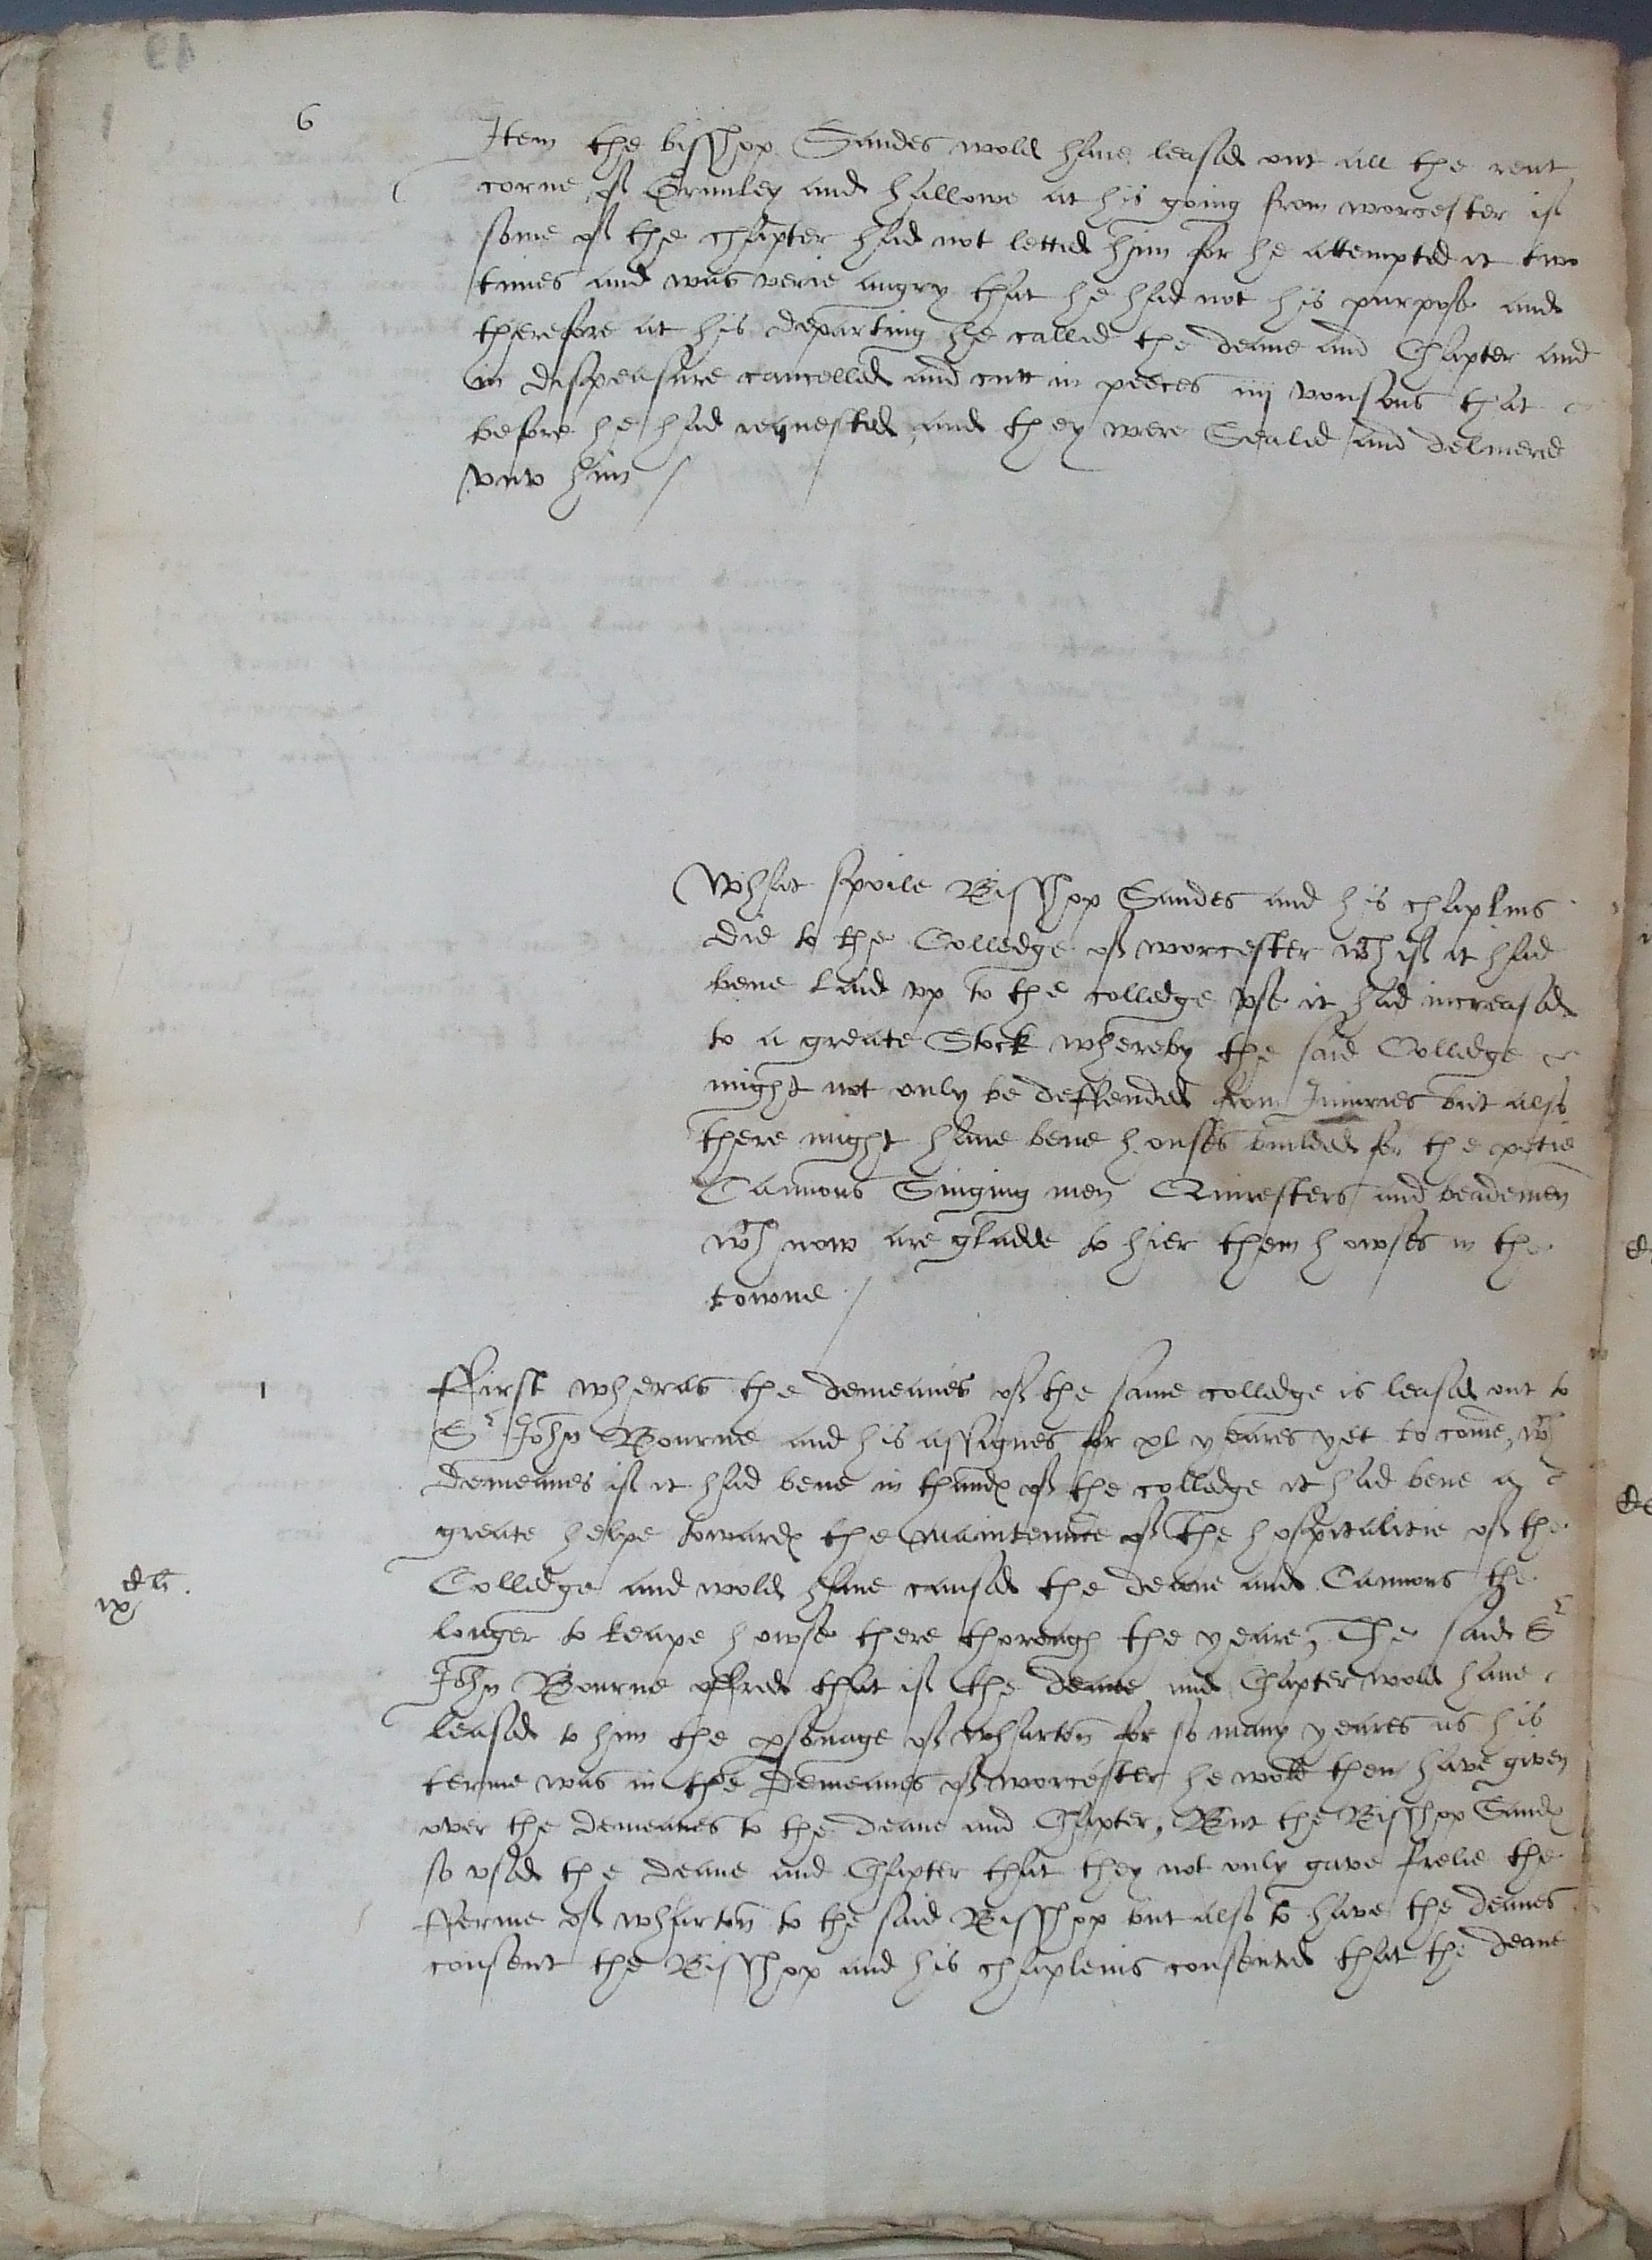 6
Item the bisshop Sandes wold haue leased out all the rent
corne of Grimley and hallowe at his going from worcester if
some of the chapter had not letted him for he attempted it two
times and was verie angry that he had not his purpose and
therefore at his departing he called the deane and Chapter and
in disspeasure cancelled and cutt in peeces iiij vousons that
before he had requested, and they were Sealed and deliuered
vnto him /
What spoile Bisshop Sandes and his chaplins
did to the Colledge of worcester wch if it had
bene laid vp to the colledge vse it had increased
to a greate Stock whereby the said Colledge
might not only be deffended from Iniuries but also
there might haue bene houses builded for the petie
Cannons Singing men Quiresters and beademen
wch now are gladde to hier them howses in the
towne /
1
ffirst wheras the demeanes of the same colledge is leased out to
Sr John Bourne and his assignes for xl yeares yet to come, wch
demeanes if it had bene in thandes of the colledge it had bene a
greate helpe towardes the maintenance of the hospitalitie of the
Colledge and wold haue caused the deane and Cannons the
longer to keape howse there thorough the yeare, The said Sr
John Bourne offred that if the deane and Chapter wold haue
leased to him the psonage of wharton for so many yeares as his
terme was in the Demeanes of worcester he wold then have given
over the demeanes to the deane and Chapter, But the Bisshop Sandes
so vsed the deane and Chapter that they not only gave frelie the
fferme of wharton to the said Bisshop but also to have the deanes
consent the Bisshop and his chapleins consented that the deane